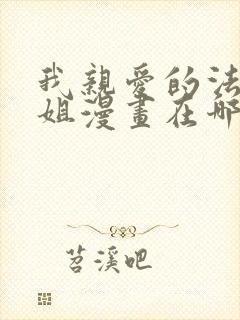 我親愛的法
姐漫畫在哪
苕溪吧